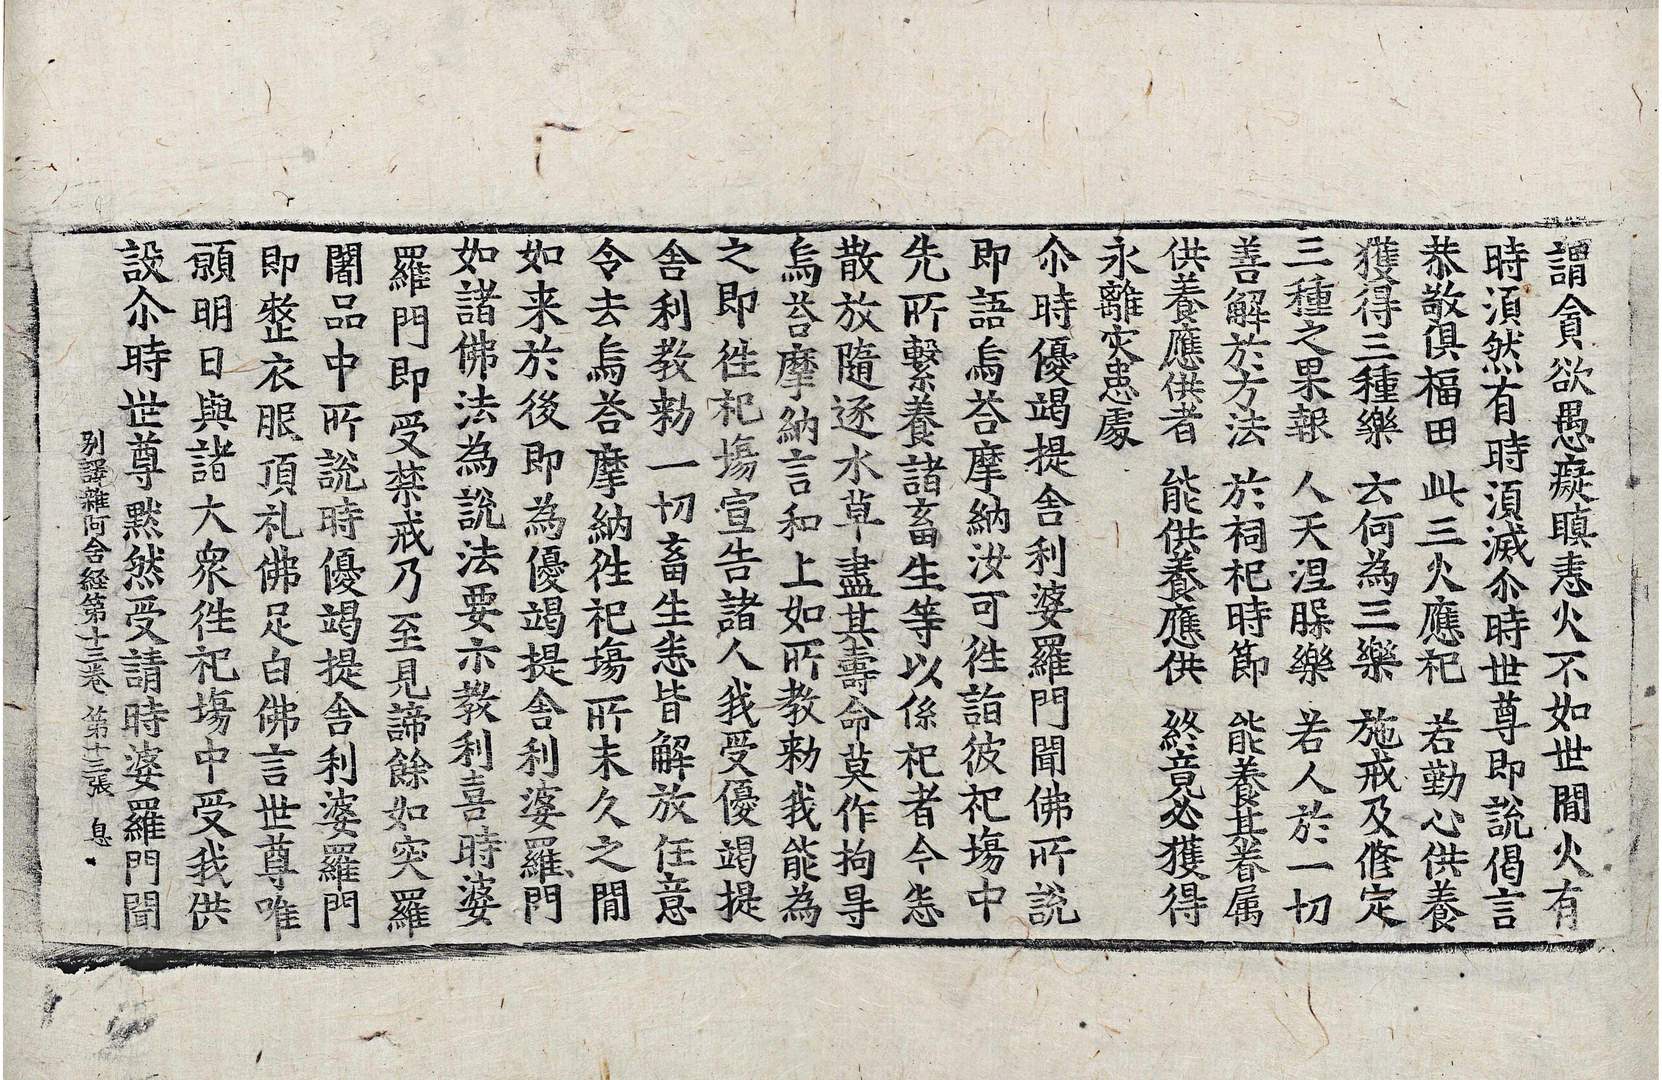 謂貪欲愚癡瞋恚火不如世間火有
時湏然有時湏滅尒時世尊即說偈言
恭敬俱福田　此三火應祀　若勤心供養
獲得三種樂　云何為三樂　施戒及修定
三種之果報　人天涅槃樂　若人於一切
善解於方法　於祠祀時節　能養其眷属
供養應供者　能供養應供　終竟必獲得
永離灾患處
尒時優竭提舍利婆羅門聞佛所說
即語烏荅摩納汝可徃詣彼祀塲中
先所繫養諸畜生等以係祀者今悉
散放隨逐水草盡其壽命莫作拘㝵
烏荅摩納言和上如所教勑我能為
之即徃祀塲宣告諸人我受優竭提
舍利教勑一切畜生悉皆解放任意
令去烏荅摩納徃祀塲所未久之間
如来於後即為優竭提舍利婆羅門
如諸佛法為說法要示教利喜時婆
羅門即受禁戒乃至見諦餘如突羅
闍品中所說時優竭提舍利婆羅門
即整衣服頂礼佛足白佛言世尊唯
願明日與諸大衆徃祀塲中受我供
設尒時世尊黙然受請時婆羅門聞
别譯雜阿含経第十三卷　第十三張　息